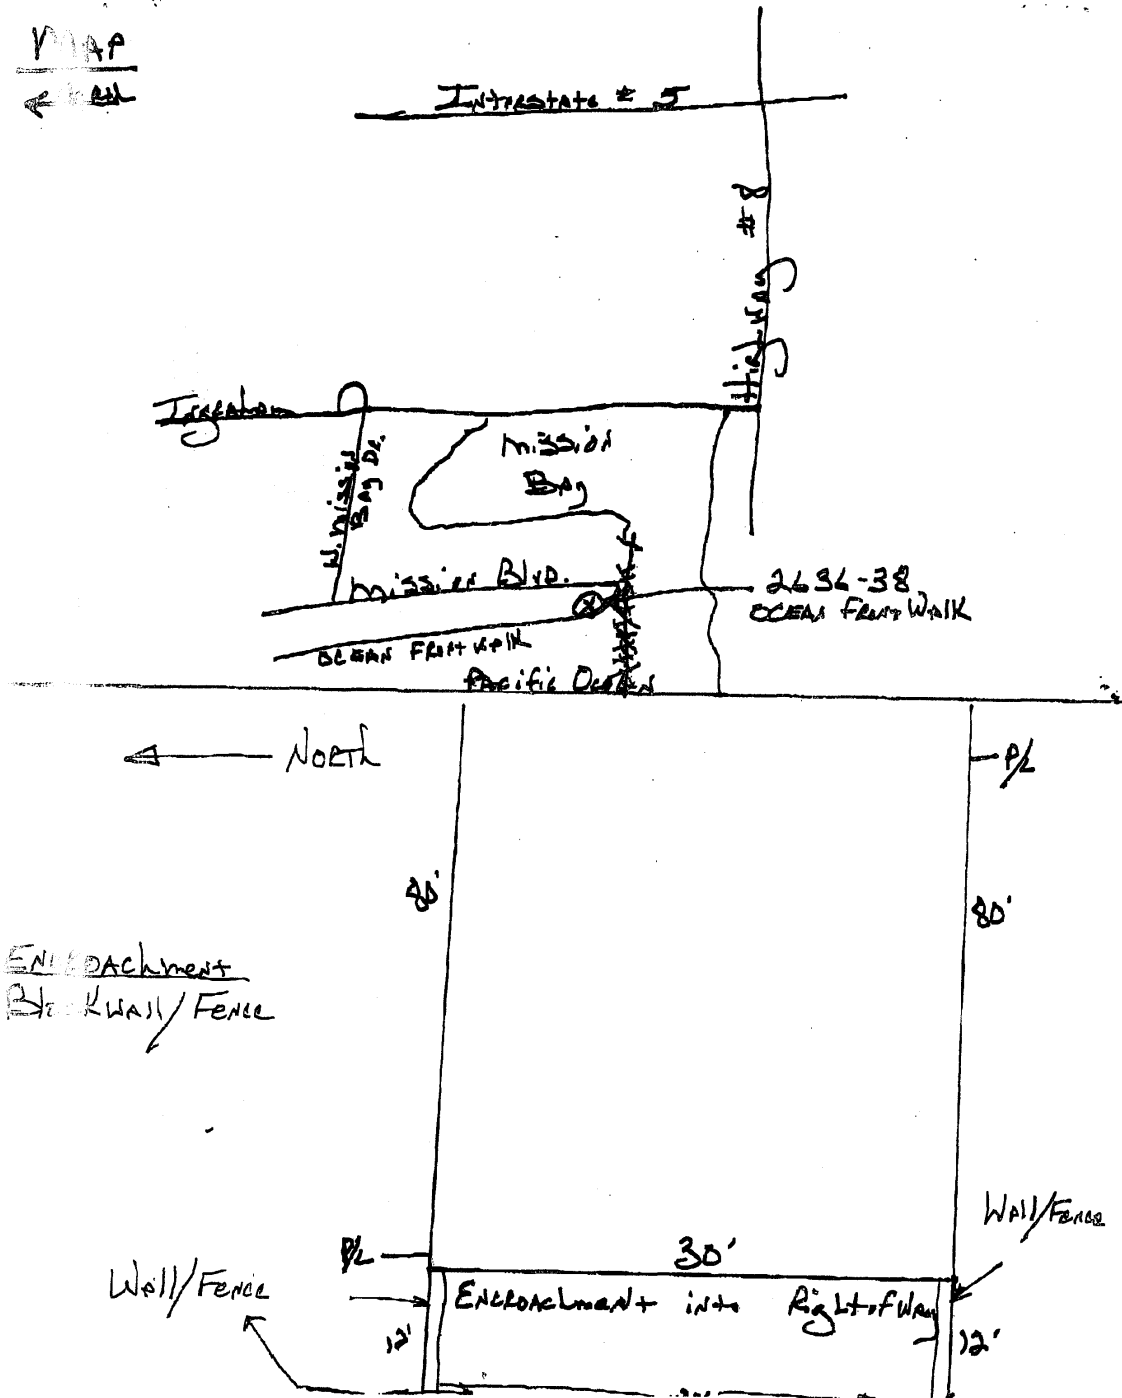 MAP
Interstate # 5
Highway #8
Ingraham
W. Mission
Bay Dr.
Mission
Bay
Mission Blvd.
2636-38
Ocean Front Walk
Ocean Front Walk
Pacific Ocean
North
P/L
80'
80'
Encroachment
Block Wall/Fence
Wall/Fence
P/L
30'
Wall/Fence
Encroachment into Right of Way
12'
12'